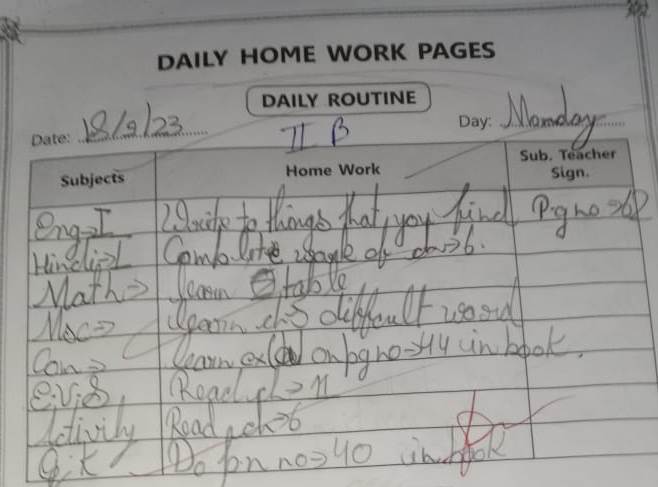 DAILY HOME WORK PAGES
DAILY ROUTINE
Date: 18/9/23 Day: Monday
II B
Subjects Home Work Sub. Teacher Sign.
Eng-I Write to things that you find Pg no → 62
Hindi-I Complite wark of ch→6.
Math → learn table
Msc → learn ch5 difficult word
Con → learn ex on pg no→44 in book.
E.V.S Read ch→11
Activity Read ch→6
G.K Do pn no→40 in book